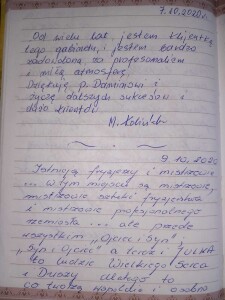 7.10.2020r.
Od wielu lat jestem klientką
tego gabinetu i jestem bardzo
zadowolona za profesjonalizm
i miłą atmosferę.
Dziękuję p. Damianowi i
życzę dalszych sukcesów i
dużo klientów
M.
9.10.2020
Istnieją fryzjerzy i mistrzowie
... w tym miejscu są mistrzowie,
mistrzowie sztuki fryzjerstwa
i mistrzowie profesjonalnego
rzemiosła ... ale przede
wszystkim "Ojciec i Syn"
"Syn i Ojciec" a teraz i JULKA
to ludzie Wielkiego Serca
i Duszy dlatego to
co tworzą wspólnie i osobno